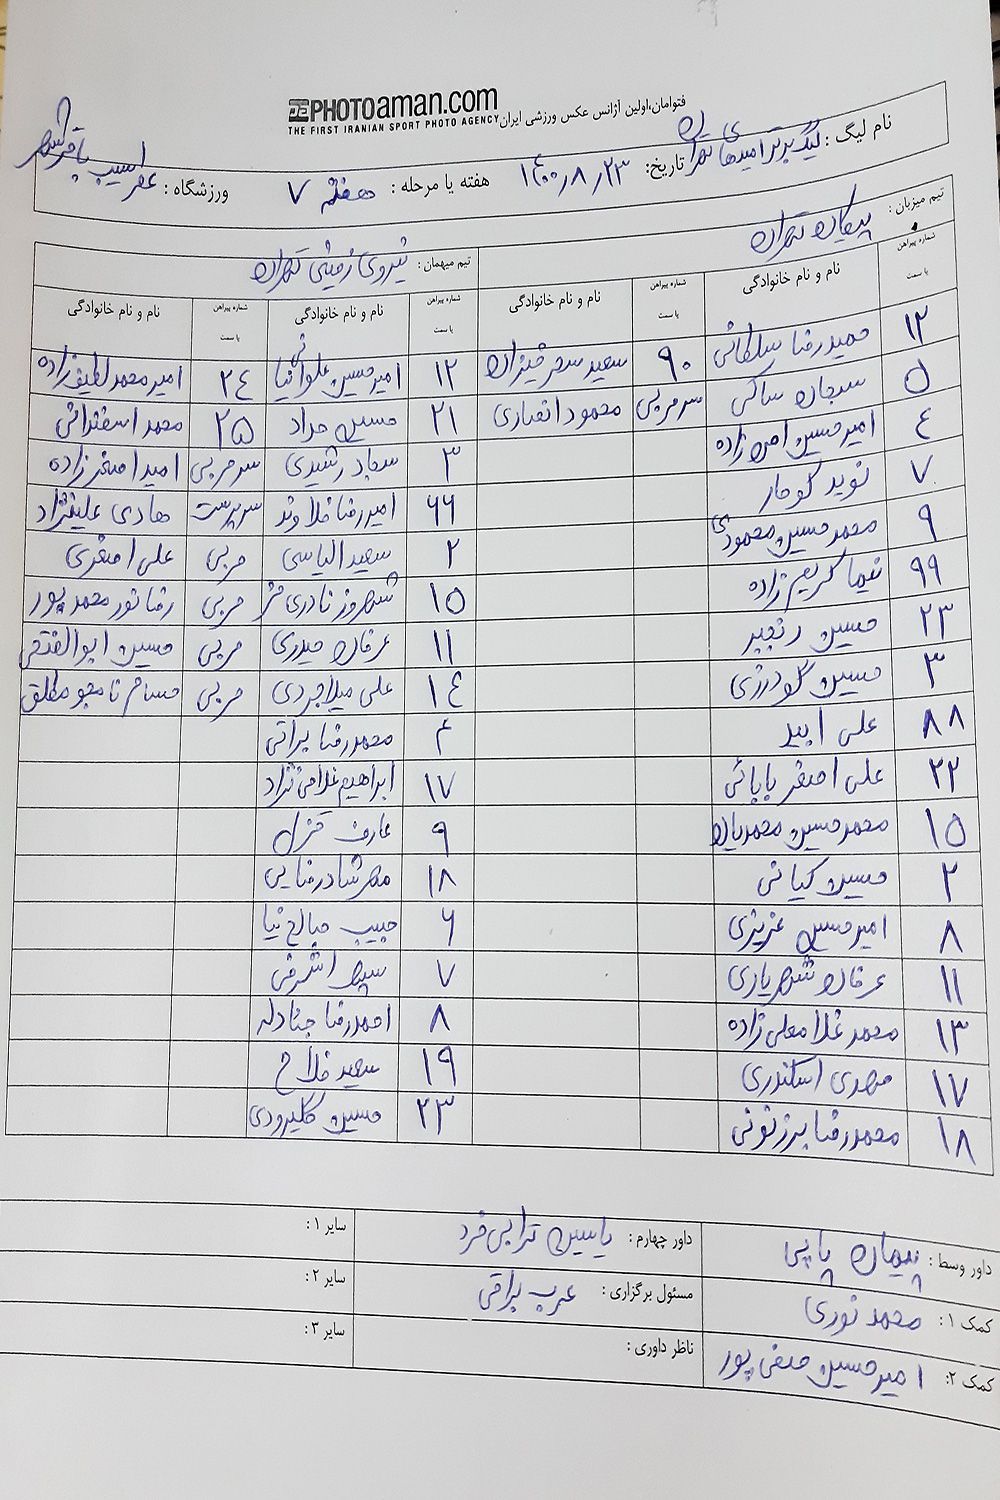 PHOTOaman.com
THE FIRST IRANIAN SPORT PHOTO AGENCY
فتوامان،اولین آژانس عکس ورزشی ایران
نام لیگ : لیگ برتر امیدهای تهران تاریخ: ۱۴۰۰٫۸٫۲۳ هفته یا مرحله : هفته ۷ ورزشگاه :
تیم میزبان : پیکان تهران
تیم میهمان : نیروی زمینی تهران
شماره پیراهن یا سمت نام و نام خانوادگی شماره پیراهن یا سمت نام و نام خانوادگی شماره پیراهن یا سمت نام و نام خانوادگی شماره پیراهن یا سمت نام و نام خانوادگی
۱۲ حمیدرضا سلطانی ۹۰ سعید سحرخیزان ۱۲ امیرحسین ۲۴ امیرمحمد لطیف زاده
۵ سبحان ساکی سرمربی محمود انصاری ۲۱ حسین حداد ۲۵ محمد
۴ امیرحسین امین زاده ۳ سجاد رشیدی سرمربی امید اصغرزاده
۷ نوید گوجار ۶۶ امیررضا فلاوند سرپرست هادی علینژاد
۹ محمدحسین محمودی ۲ سعید الیاسی مربی علی اصغری
۹۹ نیما کریم زاده ۱۵ شهروز نادری مربی رضا نورمحمدپور
۲۳ حسین رنجبر ۱۱ عرفان حیدری مربی حسین ابوالفتحی
۳ حسین گودرزی ۱۴ علی میلاجردی مربی حسام نامجو مطلق
۸۸ علی ابید ۴ محمدرضا براتی
۲۲ علی اصغر بابائی ۱۷ ابراهیم غلامی نژاد
۱۵ محمدحسین محمدیان ۹ عارف قزل
۲ حسین کیانی ۱۸ مهرشاد رضایی
۸ امیرحسین عزیزی ۶ حبیب صالح نیا
۱۱ عرفان شهریاری ۷ سپهر اشرفی
۱۳ محمد غلامعلی زاده ۸ احمدرضا جنادله
۱۷ مهدی اسکندری ۱۹ سعید فلاح
۱۸ محمدرضا برزنونی ۲۳ حسین کلیرودی
داور وسط : پیمان پاپی داور چهارم : یاسین ترابی فرد سایر ۱ :
کمک ۱ : محمد نوری مسئول برگزاری : عرب براقی سایر ۲ :
کمک ۲: امیرحسین صفی پور ناظر داوری : سایر ۳ :